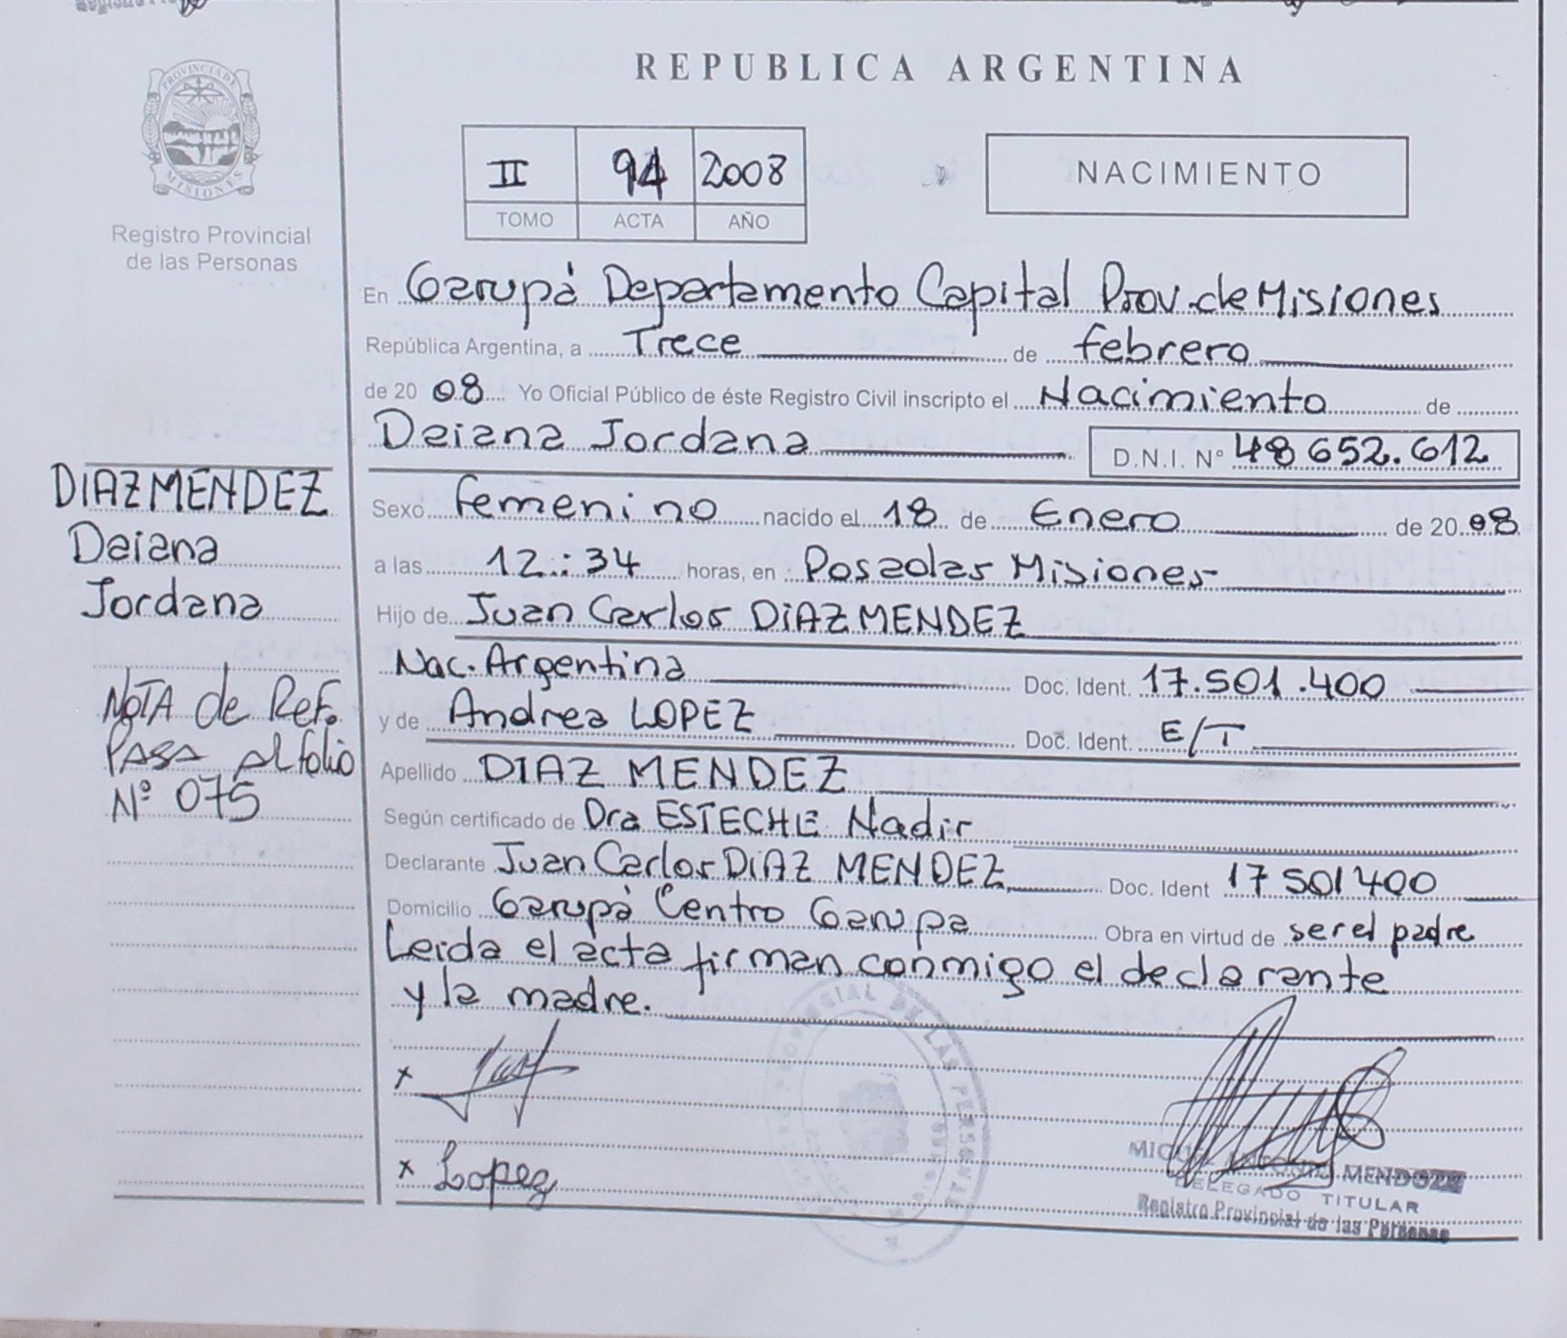 PROVINCIA DE
MISIONES
Registro Provincial
de las Personas
REPUBLICA ARGENTINA
II 94 2008
TOMO ACTA AÑO
NACIMIENTO
En Garupà Departamento Capital Prov. de Misiones
República Argentina, a Trece de febrero
de 20 08 Yo Oficial Público de éste Registro Civil inscripto el Nacimiento de
Daiana Jordana D.N.I. N° 48 652.612
DIAZ MENDEZ
Daiana
Jordana
Sexo femenino nacido el 18 de Enero de 20 08
a las 12:34 horas, en Posadas Misiones
Hijo de Juan Carlos DIAZ MENDEZ
Nac. Argentina Doc. Ident. 17.501.400
y de Andrea LOPEZ Doc. Ident. E/T
NOTA de Ref.
PASA al folio
Nº 075
Apellido DIAZ MENDEZ
Según certificado de Dra ESTECHE Nadir
Declarante Juan Carlos DIAZ MENDEZ Doc. Ident 17 501400
Domicilio Garupà Centro Garupa Obra en virtud de ser el padre
Leida el acta firman conmigo el declarante
y la madre.
x
x Lopez
PROVINCIAL DE LAS PERSONAS
MIGUEL ANTONIO MENDOZA
DELEGADO TITULAR
Registro Provincial de las Personas